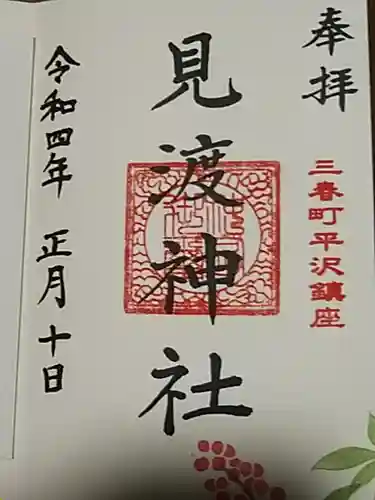 奉拝
三春町平沢鎮座
見渡神社
令和四年 正月十日